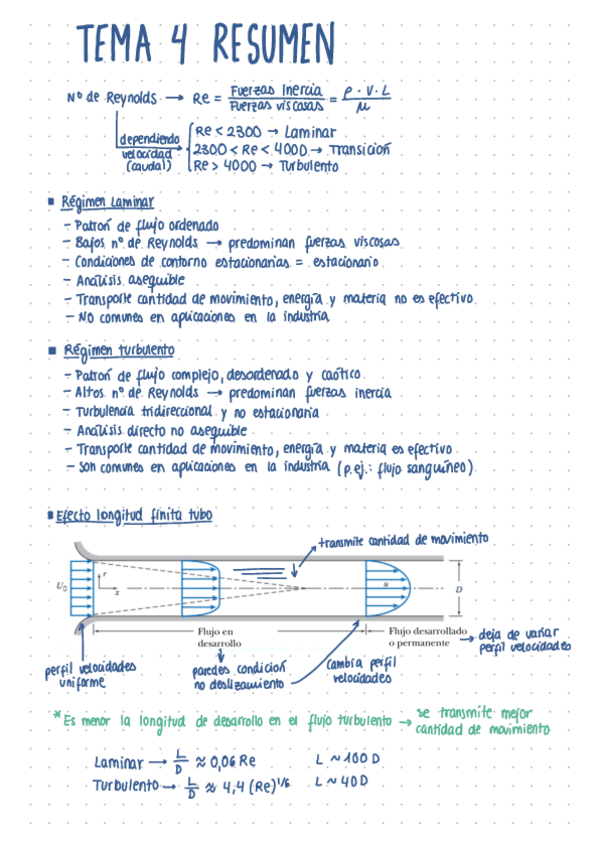 TEMA 4 RESUMEN
Nº de Reynolds → Re = Fuerzas Inercia / Fuerzas viscosas = ρ · V · L / μ
dependiendo velocidad (caudal)
Re < 2300 → Laminar
2300 < Re < 4000 → Transición
Re > 4000 → Turbulento
▪ Régimen Laminar
- Patrón de flujo ordenado
- Bajos nº de Reynolds → predominan fuerzas viscosas
- Condiciones de contorno estacionarias = estacionario
- Análisis asequible
- Transporte cantidad de movimiento, energía y materia no es efectivo
- No comunes en aplicaciones en la industria
▪ Régimen turbulento
- Patrón de flujo complejo, desordenado y caótico
- Altos nº de Reynolds → predominan fuerzas inercia
- Turbulencia tridireccional y no estacionaria
- Análisis directo no asequible
- Transporte cantidad de movimiento, energía y materia es efectivo
- Son comunes en aplicaciones en la industria (p.ej.: flujo sanguíneo)
▪ Efecto longitud finita tubo
transmite cantidad de movimiento
U₀
r
x
u
D
Flujo en
desarrollo
Flujo desarrollado
o permanente
→ deja de variar
perfil velocidades
perfil velocidades
uniforme
paredes condición
no deslizamiento
Cambia perfil
velocidades
*Es menor la longitud de desarrollo en el flujo turbulento → se transmite mejor
cantidad de movimiento
Laminar → L/D ≈ 0,06 Re L ~ 100 D
Turbulento → L/D ≈ 4,4 (Re)^1/6 L ~ 40 D